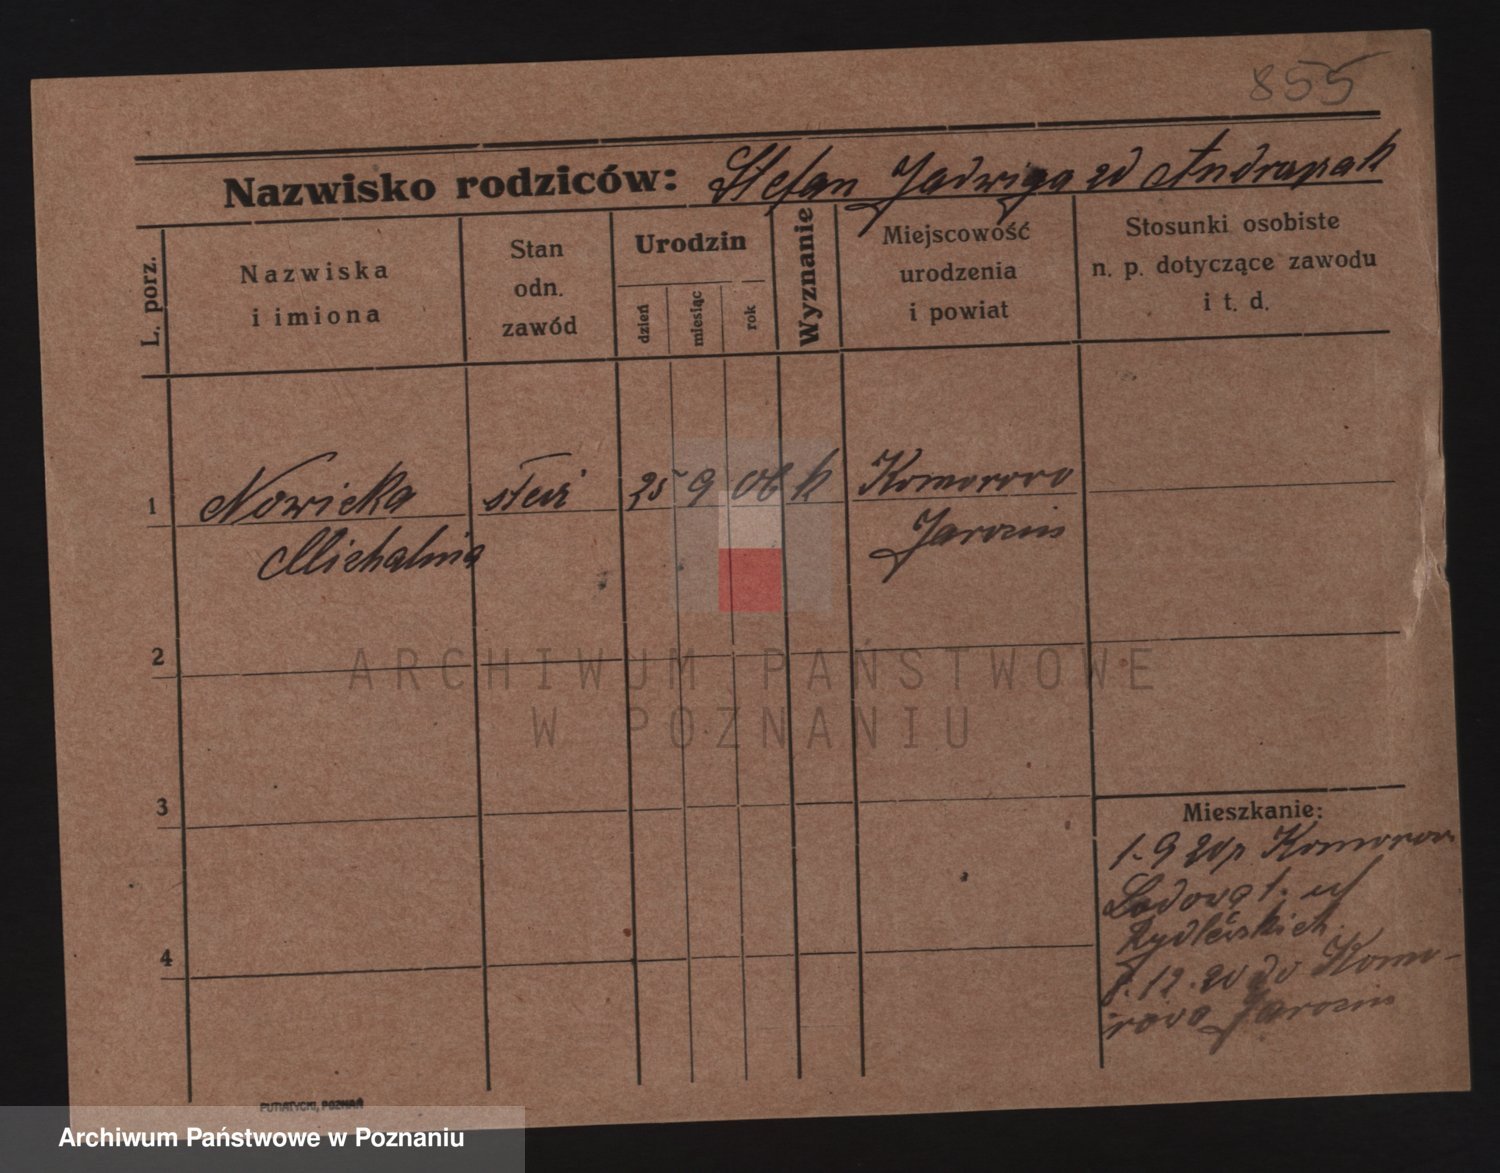 855
Nazwisko rodziców: Stefan Jadwiga zd
L. porz.
Nazwiska
i imiona
Stan
odn.
zawód
Urodzin
dzień
miesiąc
rok
Wyznanie
Miejscowość
urodzenia
i powiat
Stosunki osobiste
n. p. dotyczące zawodu
i t. d.
1
Nowicka
Michalina
służ
25 9 06 k
Komorowo
Jarocin
2
ARCHIWUM PAŃSTWOWE
W POZNANIU
3
4
Mieszkanie:
1.9 20
Ludova 1. u
12.20 do Komo-
rowo Jarocin
PUTIATYCKI, POZNAŃ
Archiwum Państwowe w Poznaniu